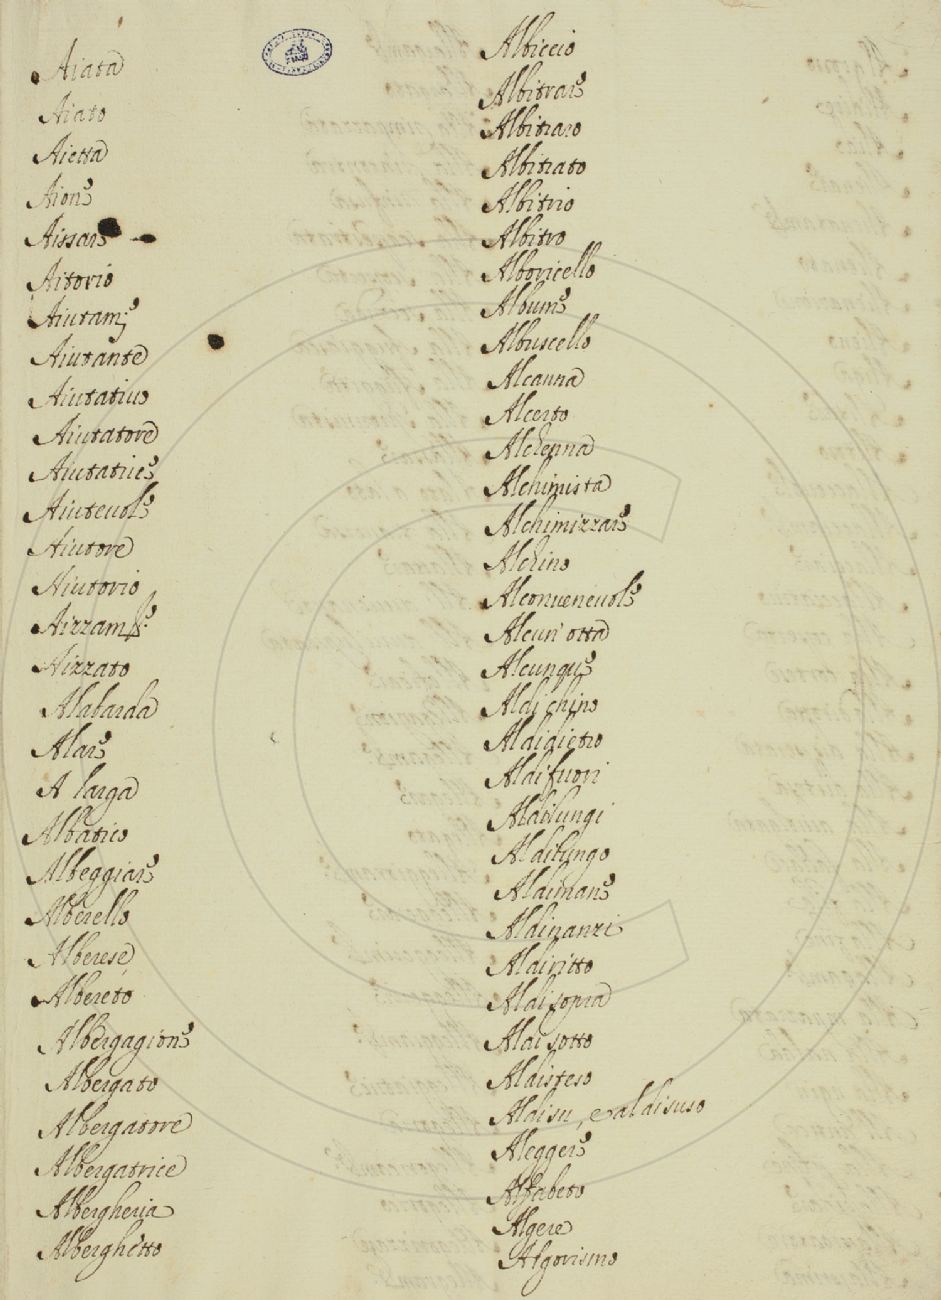 Aiata
Aiato
Aietta
Aione
Aissare
Aitorio
Aiutamᵒ
Aiutante
Aiutativo
Aiutatore
Aiutatrice
Aiutevole
Aiutore
Aiutorio
Aizzamᵒ
Aizzato
Alabarda
Alare
A larga
Albatico
Albeggiare
Alberello
Alberese
Albereto
Albergagione
Albergato
Albergatore
Albergatrice
Albergheria
Alberghetto
Albiccio
Albitrare
Albitraro
Albitrato
Albitrio
Albitro
Alboricello
Albume
Albuscello
Alcanna
Alcerto
Alchenna
Alchimista
Alchimizzare
Alchino
Alconuenevole
Alcun' otta
Alcunque
Aldi chino
Aldidietro
Aldifuori
Aldilungi
Aldilungo
Aldimane
Aldinanzi
Aldiritto
Aldisopra
Aldisotto
Aldisteso
Aldisu, e aldisuso
Aleggere
Alfabeto
Algere
Algorismo